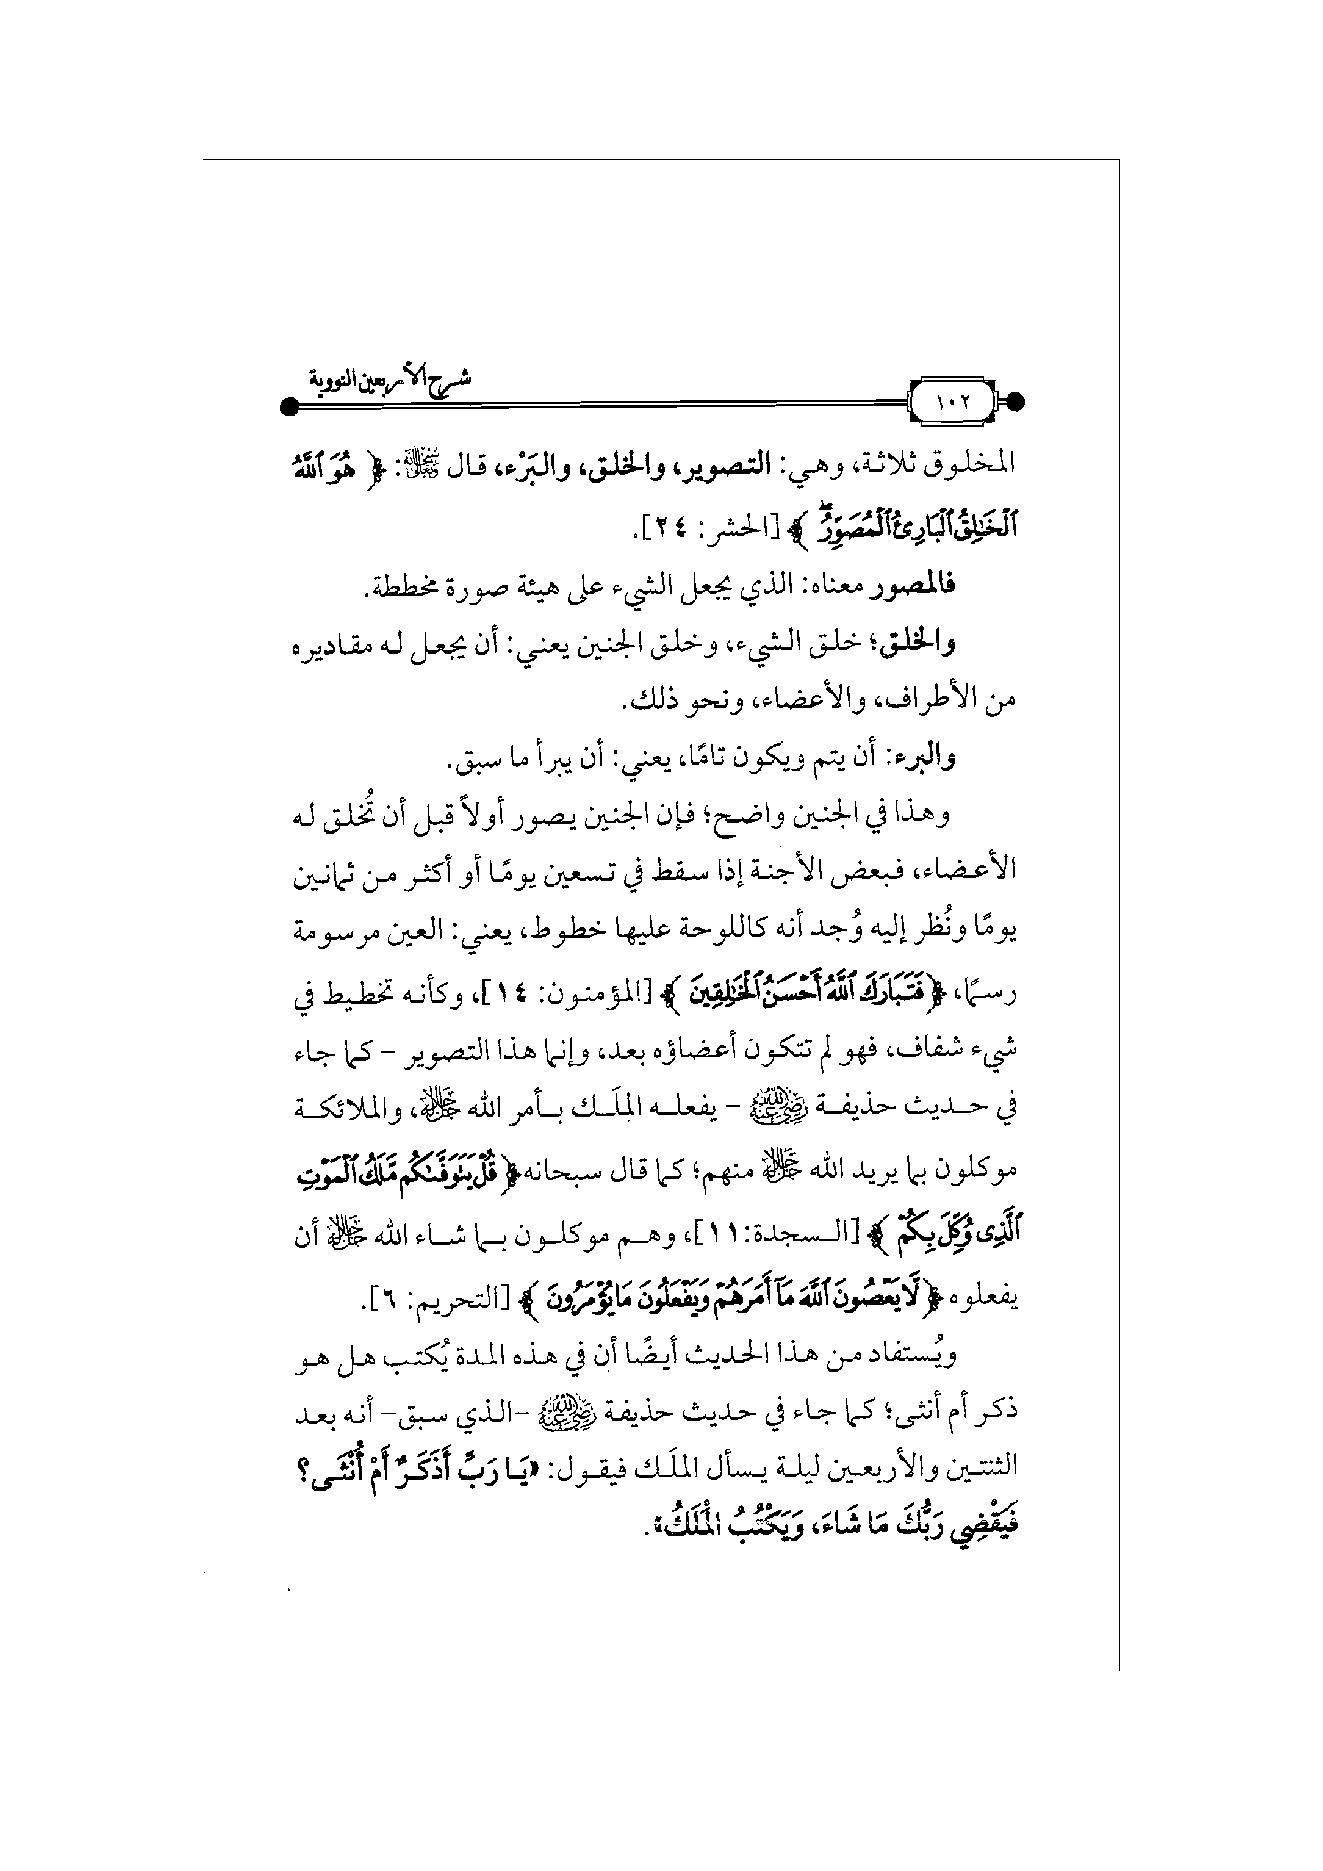 شرح الأربعين النووية
١٠٢
المخلوق ثلاثة، وهي: التصوير، والخلق، والبَرْء، قال ﷿: ﴿ هُوَ ٱللَّهُ
ٱلْخَٰلِقُ ٱلْبَارِئُ ٱلْمُصَوِّرُۖ ﴾ [الحشر: ٢٤].
فالمصور معناه: الذي يجعل الشيء على هيئة صورة مخططة.
والخلق؛ خلق الشيء، وخلق الجنين يعني: أن يجعل له مقاديره
من الأطراف، والأعضاء، ونحو ذلك.
والبرء: أن يتم ويكون تامًا، يعني: أن يبرأ ما سبق.
وهذا في الجنين واضح؛ فإن الجنين يصور أولاً قبل أن تُخلق له
الأعضاء، فبعض الأجنة إذا سقط في تسعين يومًا أو أكثر من ثمانين
يومًا ونُظر إليه وُجد أنه كاللوحة عليها خطوط، يعني: العين مرسومة
رسمًا، ﴿فَتَبَارَكَ ٱللَّهُ أَحْسَنُ ٱلْخَٰلِقِينَ ﴾ [المؤمنون: ١٤]، وكأنه تخطيط في
شيء شفاف، فهو لم تتكون أعضاؤه بعد، وإنما هذا التصوير – كما جاء
في حديث حذيفة ﵁ – يفعله الملَك بأمر الله ﷻ، والملائكة
موكلون بما يريد الله ﷻ منهم؛ كما قال سبحانه ﴿ قُلْ يَتَوَفَّىٰكُم مَّلَكُ ٱلْمَوْتِ
ٱلَّذِى وُكِّلَ بِكُمْ ﴾ [السجدة: ١١]، وهم موكلون بما شاء الله ﷻ أن
يفعلوه ﴿ لَّا يَعْصُونَ ٱللَّهَ مَآ أَمَرَهُمْ وَيَفْعَلُونَ مَا يُؤْمَرُونَ ﴾ [التحريم: ٦].
ويُستفاد من هذا الحديث أيضًا أن في هذه المدة يُكتب هل هو
ذكر أم أنثى؛ كما جاء في حديث حذيفة ﵁ –الذي سبق– أنه بعد
الثنتين والأربعين ليلة يسأل الملَك فيقول: «يَا رَبِّ أَذَكَرٌ أَمْ أُنْثَى؟
فَيَقْضِي رَبُّكَ مَا شَاءَ، وَيَكْتُبُ الْمَلَكُ».